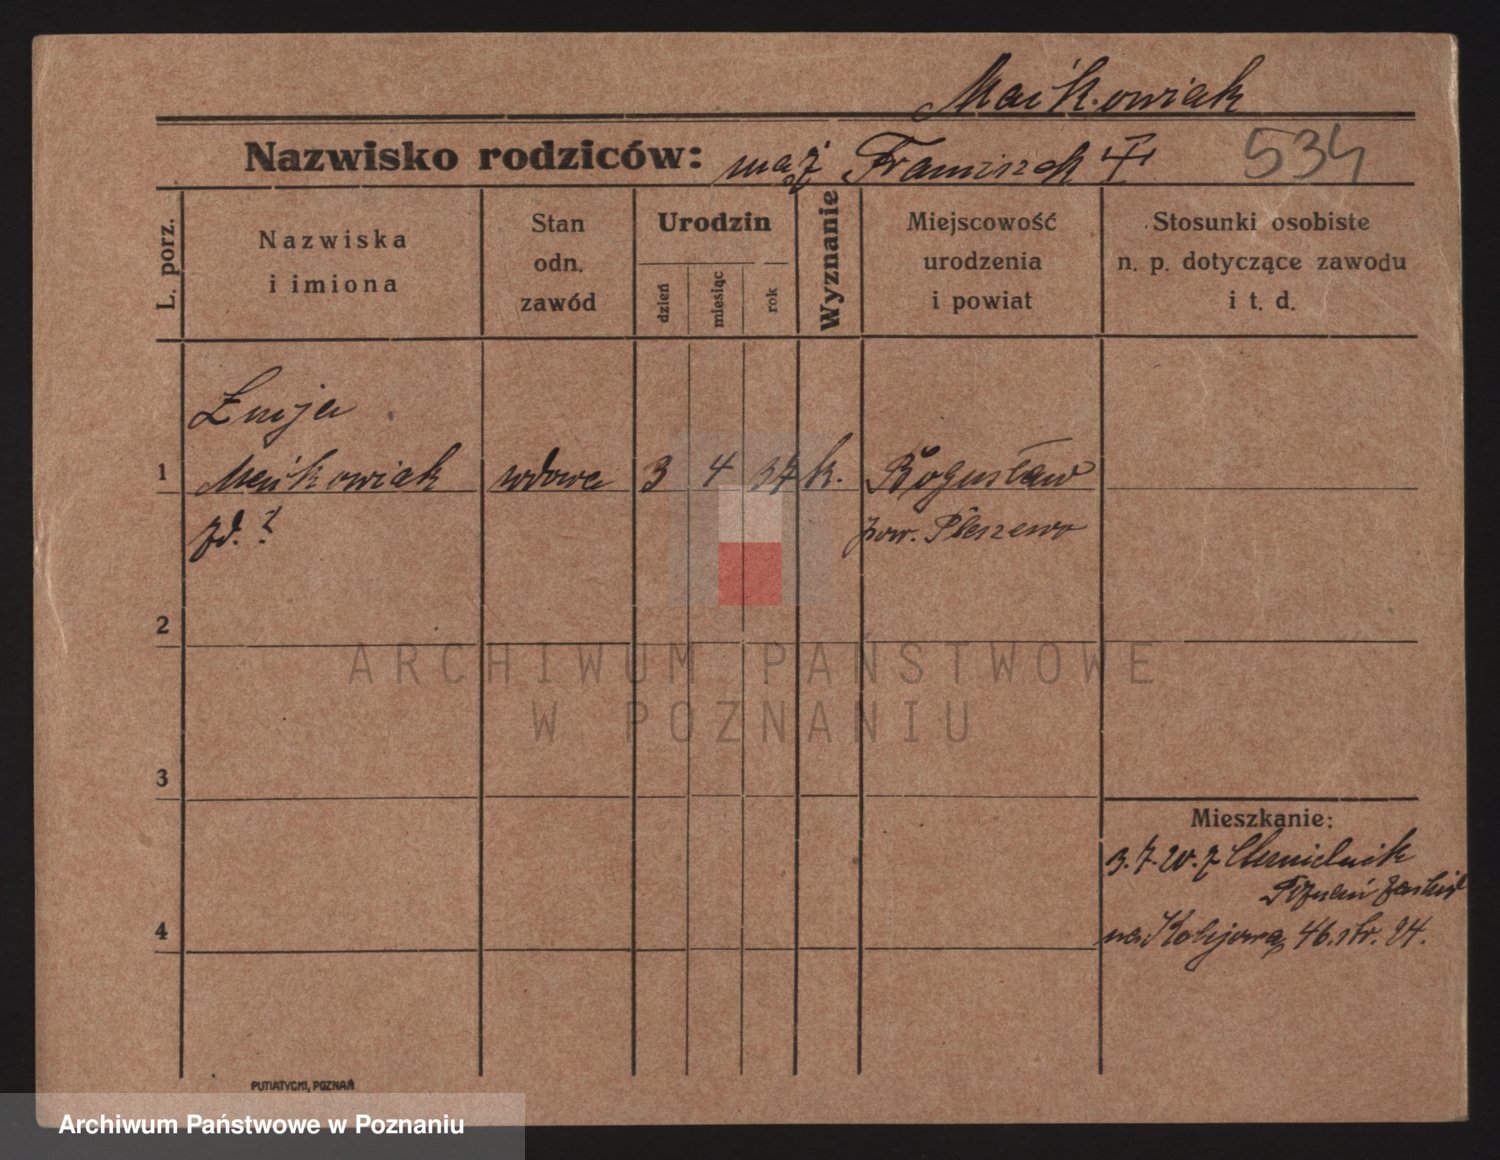 Maćkowiak
Nazwisko rodziców: mąż Franciszek
534
L. porz.
Nazwiska
i imiona
Stan
odn.
zawód
Urodzin
dzień
miesiąc
rok
Wyznanie
Miejscowość
urodzenia
i powiat
Stosunki osobiste
n. p. dotyczące zawodu
i t. d.
Łucja
1 Maćkowiak wdowa 3 4 37 k. Bogusław
zd. ? pow. Pleszewo
2
3
4
Mieszkanie:
3.7.20. z Chmielnik
Poznań
na Kolejową 46. str. 24.
PUTIATYCKI, POZNAŃ
ARCHIWUM PAŃSTWOWE
W POZNANIU
Archiwum Państwowe w Poznaniu